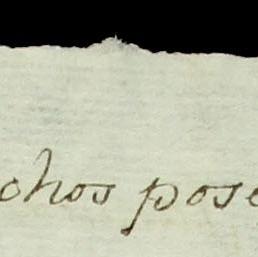 chos pose